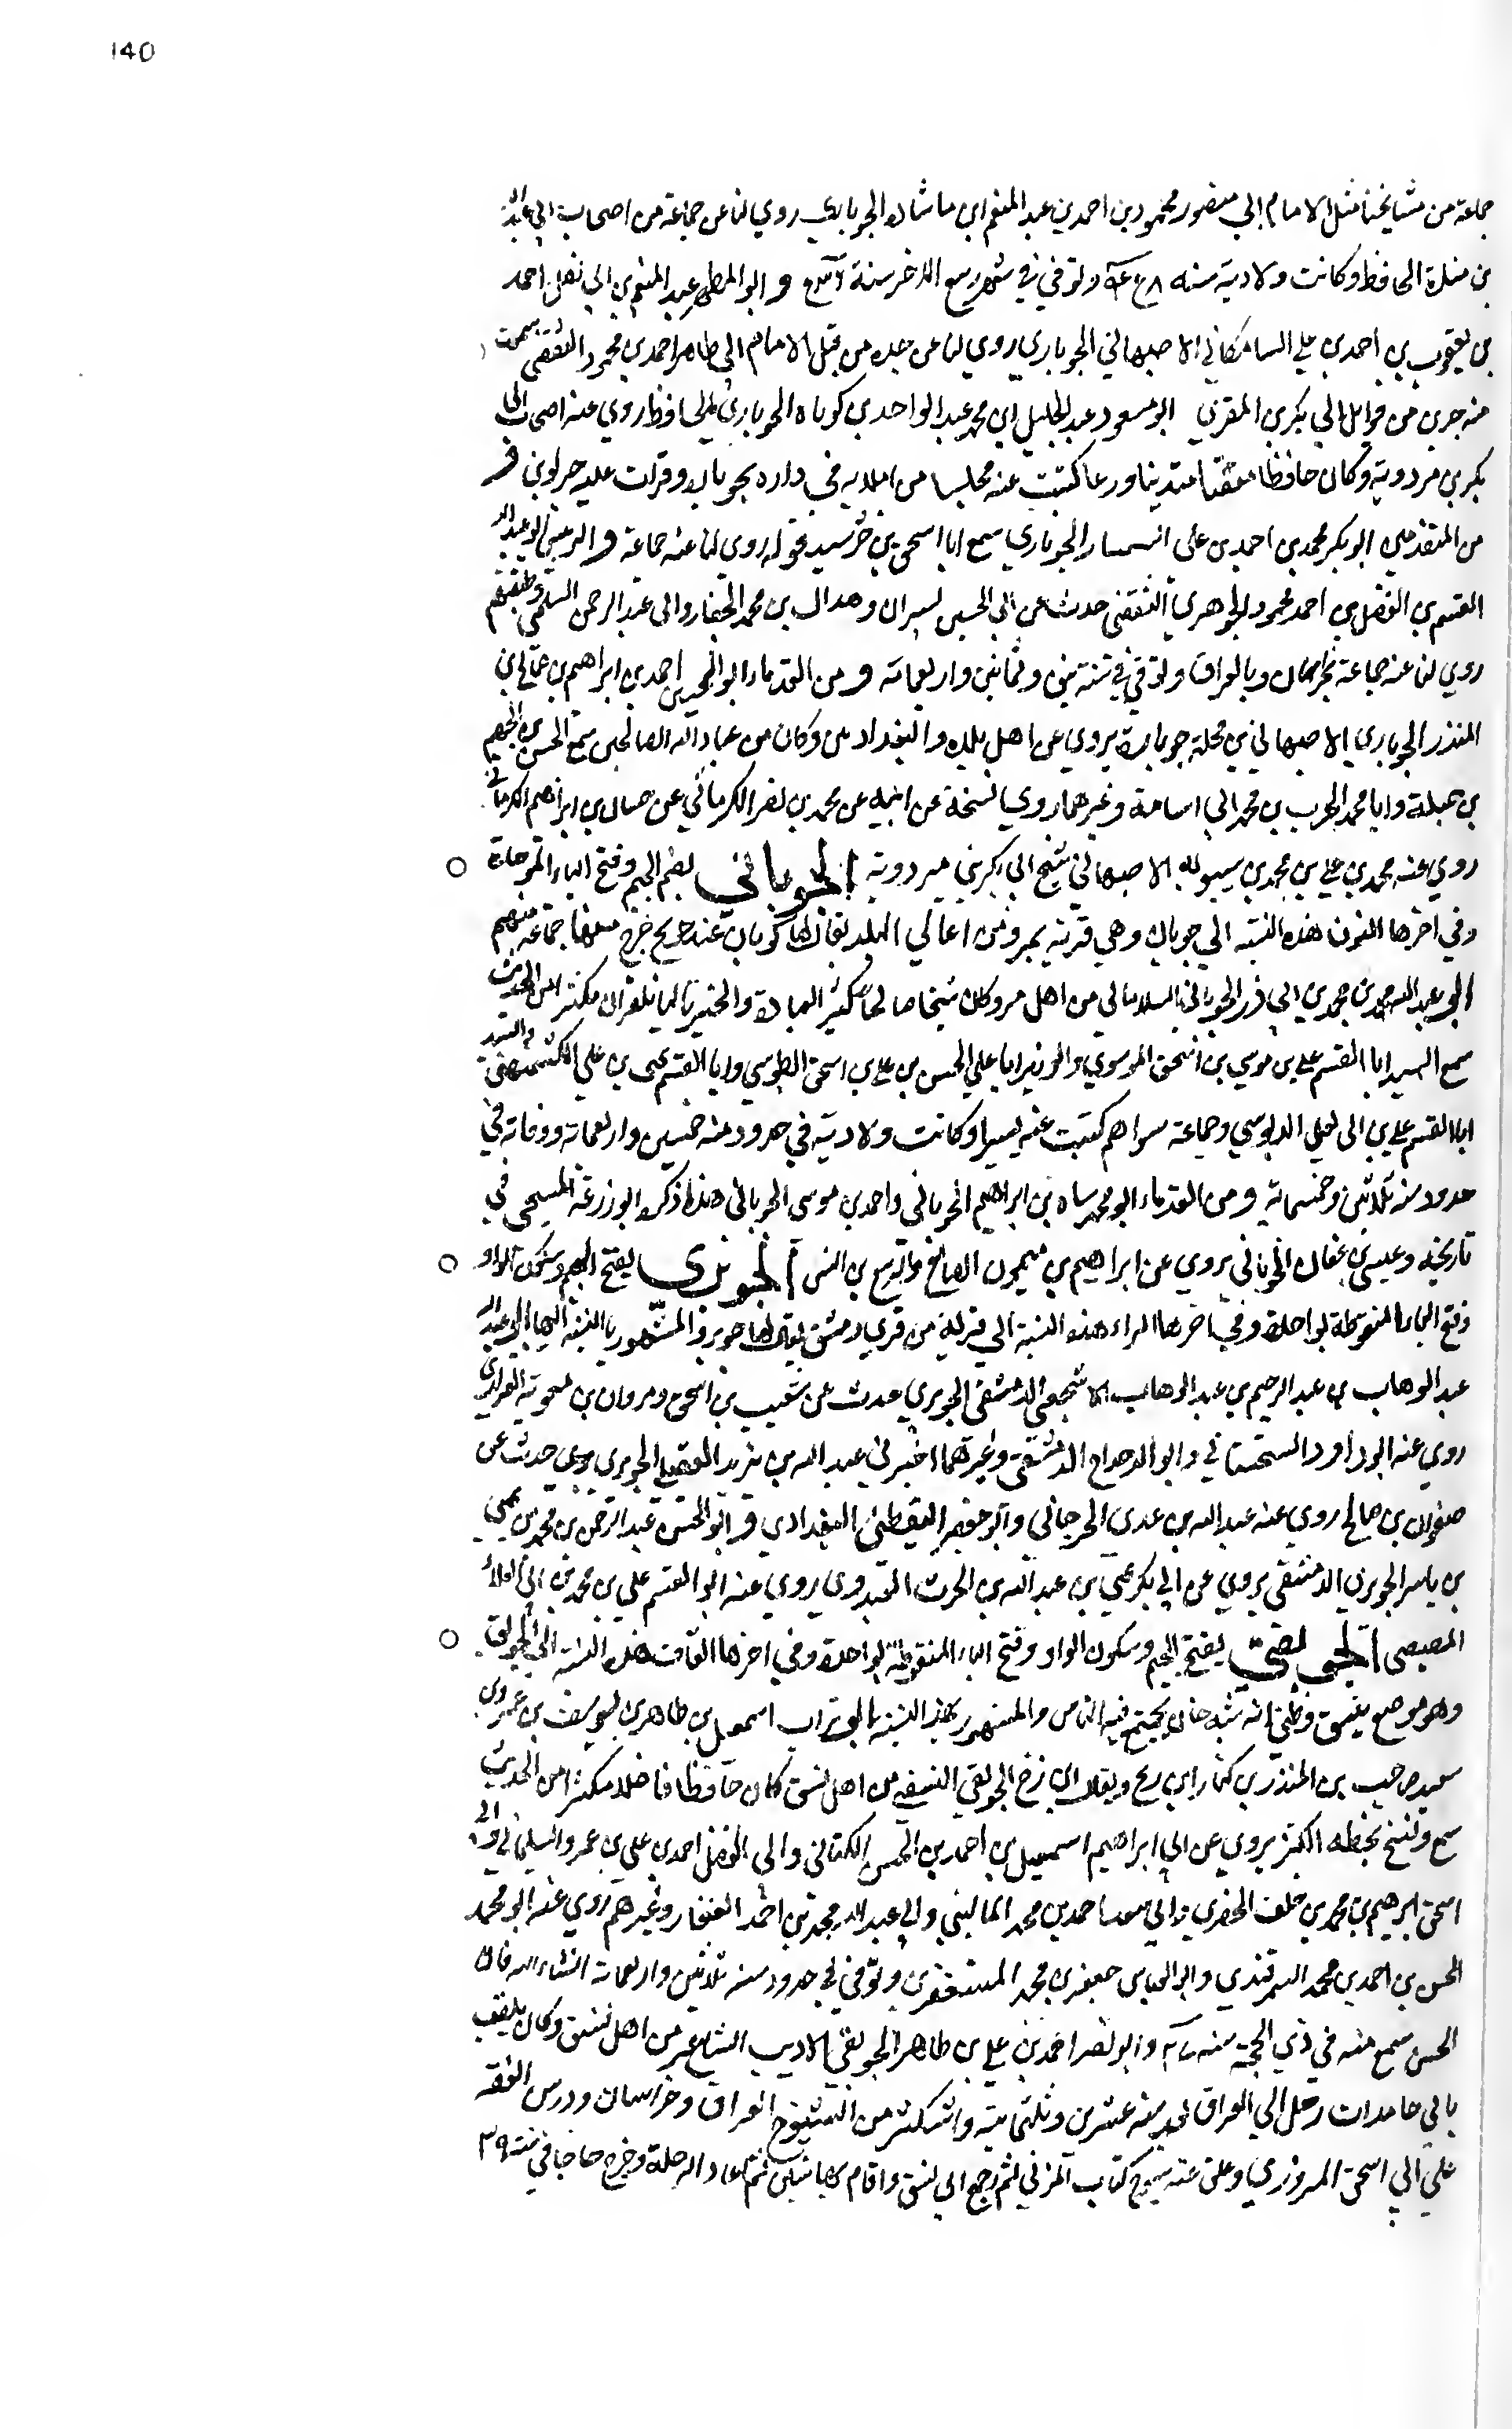 140
جماعة من مشايخنا مثل الامام ابي منصور محمود بن احمد بن عبد المنعم ابن ماشاده الجوباري روي لنا عن جماعة من اصحاب ابي عبد الله
بن مندة الحافظ وكانت ولادته سنه وتوفي في شهر ربيع الاخر سنة و ابو المطهر عبد المنعم بن ابي احمد
بن يعقوب بن احمد بن علي الاصبهاني الجوباري روي لنا عن جده من قبل الامام ابي طاهر احمد بن محمود الثقفي سمعت
منه جزءين من فوائد ابي بكر بن المقري ابو مسعود عبد الجليل ابن محمد عبد الواحد بن كوتاه الجوباري الحافظ روي عنه اصحاب ابي
بكر بن مردوية وكان حافظا متقنا متدينا ورعا كتبت عنه مجلسا من املايه في داره بجوباره وقرات عليه و
من المتقدمين ابو بكر محمد بن احمد بن علي السمسار الجوباري سمع ابا اسحق بن خرشيد قوله روي لنا عنه جماعة و الرييس ابو عبد الله
القسم بن الفضل بن احمد محمود الجوهري الثقفي حدث عن ابي الحسين وهلال بن محمد الحفار وابي عبد الرحمن السلمي وطبقتهم
روي لنا عنه جماعة بخراسان وبالعراق وتوفي في سنة وثمانين واربعماته و من القدماء ابو الحسين احمد بن ابراهيم بن صالح بن
المنذر الجوباري الاصبهاني من محلة جوبارة يروي عن اهل بلده والبغداديين وكان من عباد الله الصالحين سمع الحسن بن الجهم
بن جبلة وابا محمد الحرب بن محمد ابي اسامة وغيرهما روي نسخة عن ابيه عن محمد بن نصر الكرماني عن حسان بن ابراهيم الكرماني
روي عنه محمد بن علي بن محمد بن سيبويه الاصبهاني شيخ ابي بكر بن مردوية الجوباني بضم الجيم وفتح الباء الموحدة
وفي اخرها النون هذه النسبه الي جوبان وهي قرية بمرو من اعالي البلد يقال لها كوبان عند خرج منها جماعة منهم
ابو عبد الله محمد بن محمد بن ابي ذر الجوباني السلاماني من اهل مرو وكان شيخا صالحا كثير العبادة والخير تاليا للقران مكثرا من الحديث
سمع السيد ابا القسم علي بن موسي بن اسحق الموسوي والوزير ابا علي الحسن بن علي بن اسحق الطوسي وابا القسم يحيى بن علي الكشميهني والسيد
ابا القسم علي بن ابي يعلي الدبوسي وجماعة سواهم كتبت عنه يسيرا وكانت ولادته في حدود سنه خمسين واربعماته ووفاته في
حدود سنه ثلاثين وخمسماية و من القدماء ابو محمد ساه بن ابراهيم الجوباني واحمد بن موسى الجوباني هكذا ذكره ابو زرعة السنجي في
تاريخه وعيسى بن عقال الجوباني يروي عن ابراهيم بن ميمون الصائغ والربيع بن انس الجوبري بفتح الجيم وسكون الواو
وفتح الباء المنقوطة بواحدة وفي اخرها الراء هذه النسبة الي قرية من قري دمشق يقال لها جوبر والمشهور بالنسبة اليها ابو عبد الله
عبد الوهاب بن عبد الرحيم بن عبد الوهاب الاشجعي الدمشقي الجوبري حدث عن شعيب بن اسحق ومروان بن معوية الفزاري
روي عنه ابو داود السجستاني وابو الدحداح الدمشقي وغيرهما اخبرني عبد الله بن يزيد الجوبري حدث عن
صفوان بن صالح روي عنه عبد الله بن عدي الجرجاني وابو جعفر اليقطيني البغدادي و ابو الحسن عبد الرحمن بن محمد بن يحيى
بن ياسر الجوبري الدمشقي يروي عن ابي بكر يحيى بن عبد الله بن الحرث العبدري روي عنه ابو القسم علي بن محمد بن ابي العلاء
المصيصي الجوبقي بفتح الجيم وسكون الواو وفتح الباء المنقوطة بواحدة وفي اخرها القاف هذه النسبه الي الجوبق
وهو موضع بنسف وظني انه شبه خان يجتمع فيه الناس والمشهور بهذه النسبه ابو تراب اسمعيل بن طاهر بن يوسف بن عمرو بن
سعيد صاحب بن المنذر بن كنار ابن ريح ويقال ابن زنح الجوبقي النسفي من اهل نسف كان حافظا فاضلا مكثرا من الحديث
سمع ونسخ بخطه الكثير يروي عن ابي ابراهيم اسمعيل بن احمد بن الحسن الكتاني وابي الفضل احمد بن علي بن عمرو السليماني وابي
اسحق ابرهيم بن محمد بن خلف الحضري وابي سعد احمد بن محمد الماليني وابي عبد الله محمد بن احمد الغنجار وغيرهم روي عنه ابو محمد
الحسن بن احمد بن محمد السمرقندي وابو العباس جعفر بن محمد المستغفري وتوفي في حدود سنه ثلاثين واربعماته انشاء الله قال
الحسن سمع منه في ذي الحجة سنه وابو نصر احمد بن علي بن طاهر الجوبقي الاديب الشاعر من اهل نسف وكان يلقب
بابي حامدات رحل الي العراق بعد سنه عشرين وثلثمايته واستكثر من الشيوخ العراق وخراسان ودرس الفقه
علي ابي اسحق المروزي وعلق عنه شرح كتاب المزني ثم رجع الي نسف واقام بها سنين ثم اعاد الرحلة وخرج حاجا في سنه ٣٩